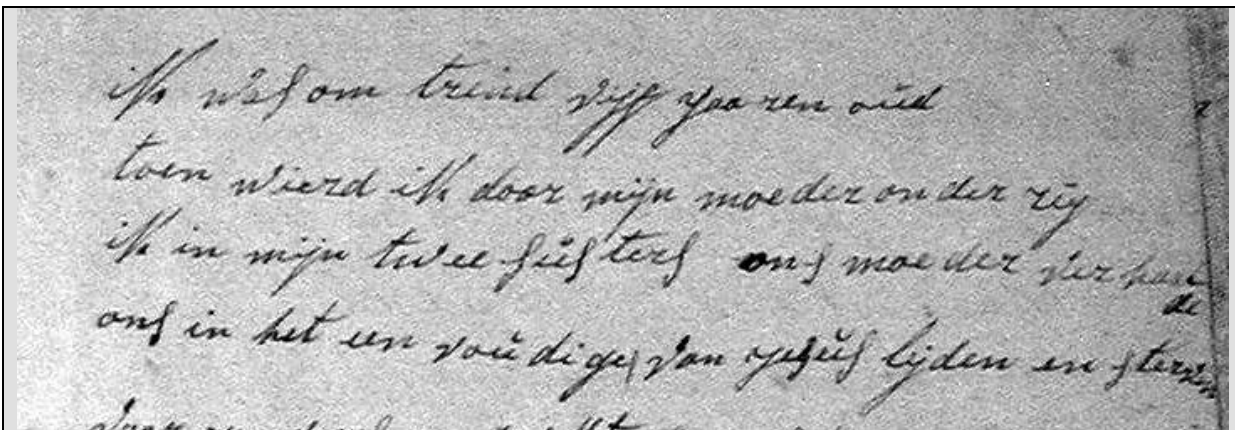 ik was om trend vijf yaaren oud
toen wierd ik door mijn moeder onder rig
ik in mijn twee susters ons moeder ver haal
de
ons in het een voudige van yesus lijden en sterven